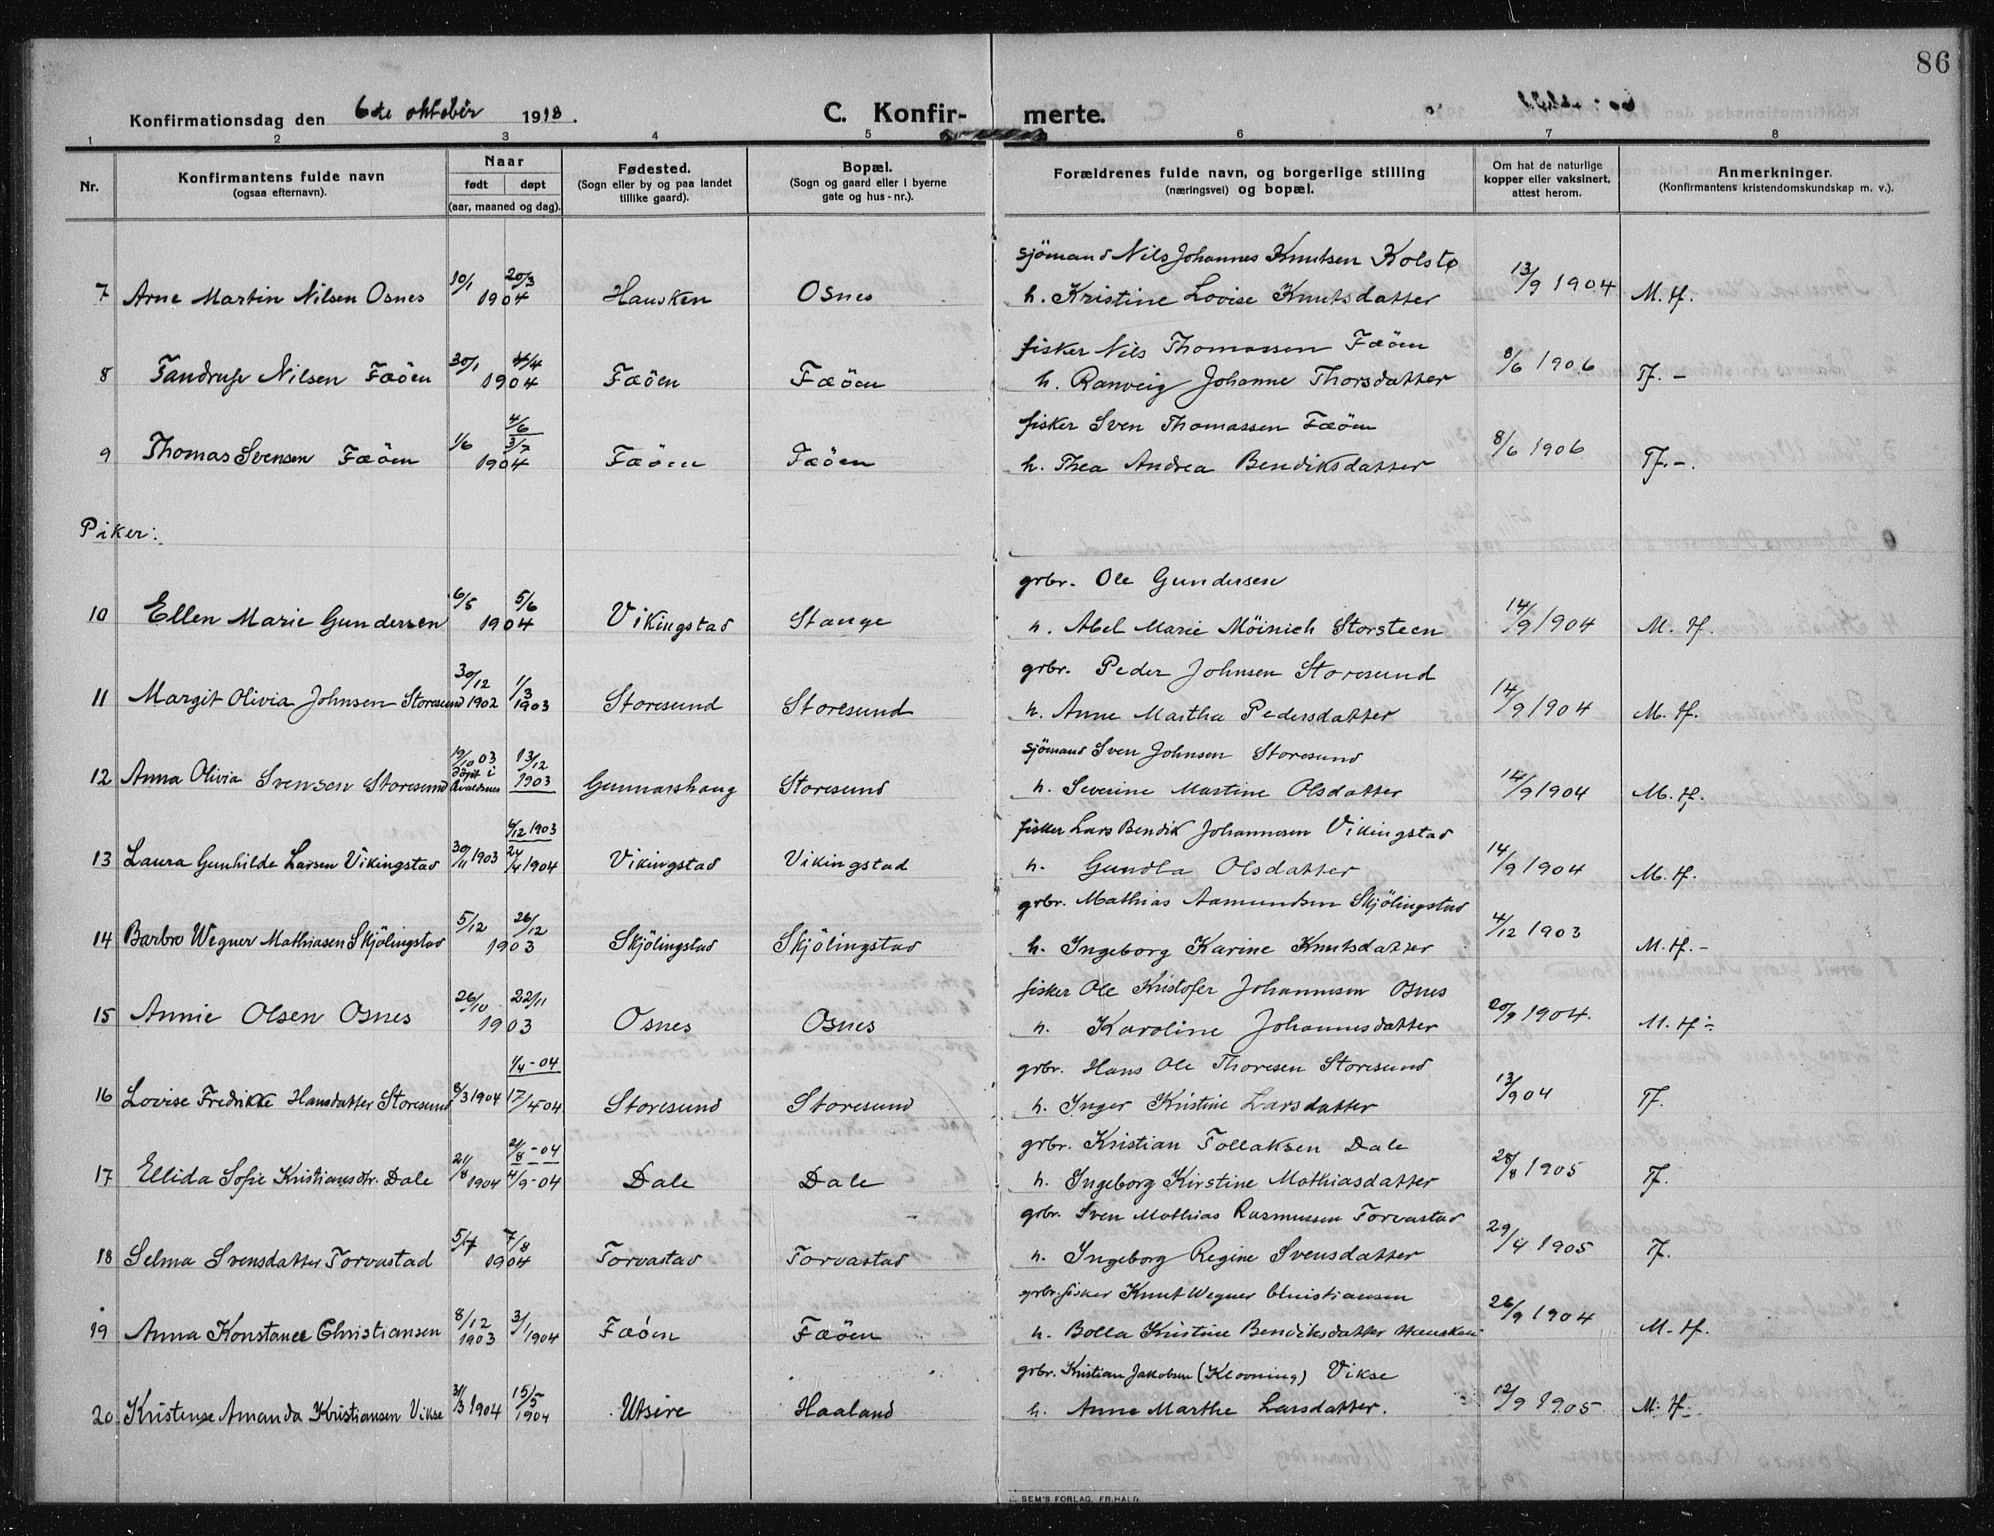 86
Konfirmationsdag den 6te oktober 1918.
C. Konfir-merte.
1 2 3 4 5 6 7 8
Nr.
Konfirmantens fulde navn
(ogsaa efternavn).
Naar
født døpt
(aar, maaned og dag).
Fødested.
(Sogn eller by og paa landet
tillike gaard).
Bopæl.
(Sogn og gaard eller i byerne
gate og hus-nr.).
Forældrenes fulde navn, og borgerlige stilling
(næringsvei) og bopæl.
Om hat de naturlige
kopper eller vaksinert,
attest herom.
Anmerkninger.
(Konfirmantens kristendomskundskap m. v.).
sjömand Nils Johannes Knutsen Kolstø
7 Arne Martin Nilsen Osnes 10/1 20/3 1904 Hausken Osnes h. Kristine Lovise Knutsdatter 13/9 1904 M. H.
fisker Nils Thomassen Fæöen
8 Tandrup Nilsen Fæöen 30/1 4/4 1904 Fæöen Fæöen h. Ranveig Johanne Thorsdatter 8/6 1906 Tf. -
fisker Sven Thomassen Fæöen
9 Thomas Svensen Fæöen 1/6 4/6 3/7 1904 Fæöen Fæöen h. Thea Andrea Bendiksdatter 8/6 1906 Tf. -.
Piker:
grbr. Ole Gundersen
10 Ellen Marie Gundersen 6/5 5/6 1904 Vikingstad Stange h. Abel Marie Möinich Storsteen 14/9 1904 M. H.
grbr. Peder Johnsen Storesund
11 Margit Olivia Johnsen Storesund 30/12 1902 1/3 1903 Storesund Storesund h. Anne Martha Pedersdatter 14/9 1904 M. H.
sjömand Sven Johnsen Storesund
12 Anna Olivia Svensen Storesund 19/10 03 döpt i Avaldsnes 13/12 1903 Gunnarshaug Storesund h. Severine Martine Olsdatter 14/9 1904 M. H.
fisker Lars Bendik Johannesen Vikingstad
13 Laura Gunhilde Larsen Vikingstad 30/11 1903 6/12 1903 24/4 1904 Vikingstad Vikingstad h. Gundla Olsdatter 14/9 1904 M. H.
grbr. Mathias Aamundsen Skjölingstad
14 Barbro Wegner Mathiasen Skjölingstad 5/12 26/12 1903 Skjölingstad Skjölingstad h. Ingeborg Karine Knutsdatter 4/12 1903 M. H. -
fisker Ole Kristofer Johannesen Osnes
15 Annie Olsen Osnes 26/10 22/11 1903 Osnes Osnes h. Karoline Johannesdatter 20/9 1904. M. H -
grbr. Hans Ole Thoresen Storesund
16 Lovise Fredrikke Hansdatter Storesund 8/3 1904 1/4 - 04 17/4 04 Storesund Storesund h. Inger Kristine Larsdatter 13/9 04 Tf.
grbr. Kristian Tollaksen Dale
17 Ellida Sofie Kristiansdtr. Dale 21/8 1904 21/8 - 04 4/9 - 04 Dale Dale h. Ingeborg Kirstine Mathiasdatter 28/8 1905 Tf.
grbr. Sven Mathias Rasmussen Torvastad
18 Selma Svensdatter Torvastad 5/7 7/8 1904 Torvastad Torvastad h. Ingeborg Regine Svensdatter 29/4 1905 Tf.
grbr. fisker Knut Wegner Christiansen
19 Anna Konstance Christiansen 8/12 1903 3/1 1904 Fæöen Fæöen h. Bolla Kristine Bendiksdatter Hausken 26/9 1904 M. H.
grbr. Kristian Jakobsen (Klovning) Vikse
20 Kristense Amanda Kristiansen Vikse 31/3 1904 15/5 1904 Utsire Haaland h. Anne Marthe Larsdatter. 12/9 1905 M. H.
SEM'S FORLAG, FR.HALD